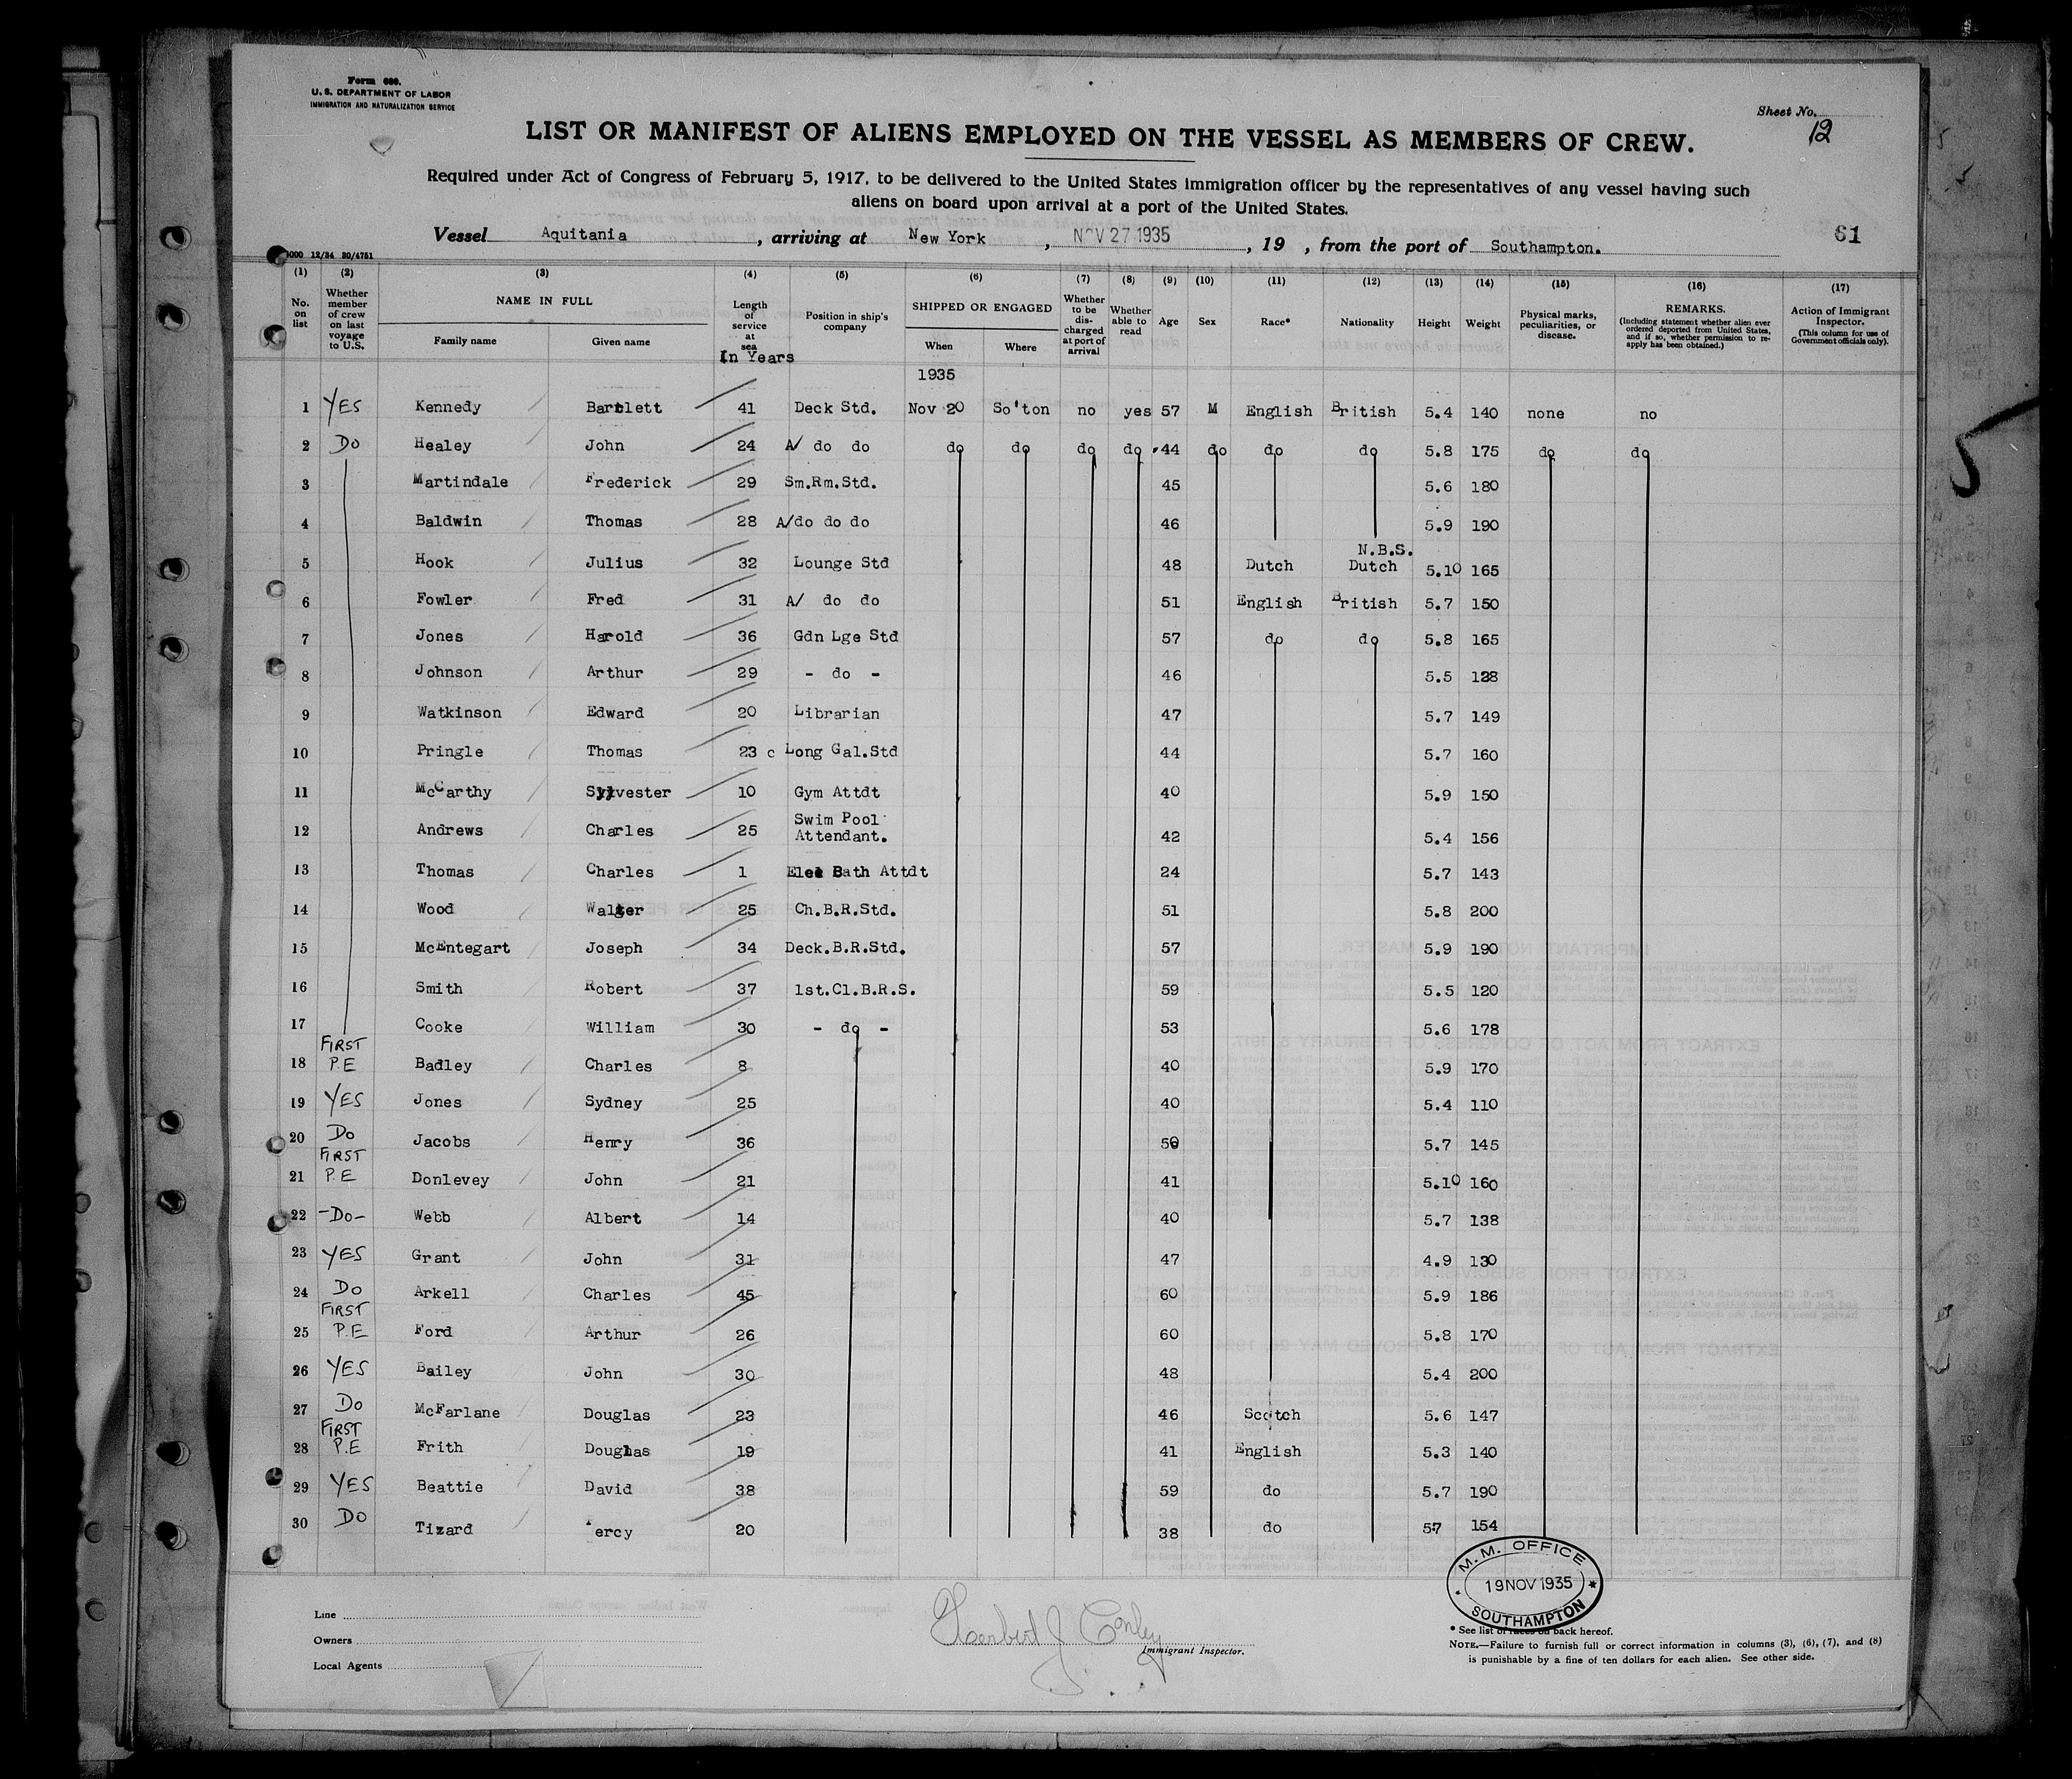 Form 689.
U. S. DEPARTMENT OF LABOR
IMMIGRATION AND NATURALIZATION SERVICE
Sheet No. 12
LIST OR MANIFEST OF ALIENS EMPLOYED ON THE VESSEL AS MEMBERS OF CREW.
Required under Act of Congress of February 5, 1917, to be delivered to the United States immigration officer by the representatives of any vessel having such
aliens on board upon arrival at a port of the United States.
Vessel Aquitania, arriving at New York, NOV 27 1935, 19 , from the port of Southampton.
61
12/34 30/4751
(1) (2) (3) (4) (5) (6) (7) (8) (9) (10) (11) (12) (13) (14) (15) (16) (17)
No. on list
Whether member of crew on last voyage to U.S.
NAME IN FULL
Family name Given name
Length of service at sea
In Years
Position in ship's company
SHIPPED OR ENGAGED
When Where
Whether to be discharged at port of arrival
Whether able to read
Age Sex Race* Nationality Height Weight
Physical marks, peculiarities, or disease.
REMARKS.
(Including statement whether alien ever ordered deported from United States, and if so, whether permission to reapply has been obtained.)
Action of Immigrant Inspector.
(This column for use of Government officials only).
1935
1 YES Kennedy Bartlett 41 Deck Std. Nov 20 So'ton no yes 57 M English British 5.4 140 none no
2 Do Healey John 24 A/ do do do do do do 44 do do do 5.8 175 do do
3 Martindale Frederick 29 Sm.Rm.Std. 45 5.6 180
4 Baldwin Thomas 28 A/do do do 46 5.9 190
N.B.S.
5 Hook Julius 32 Lounge Std 48 Dutch Dutch 5.10 165
6 Fowler Fred 31 A/ do do 51 English British 5.7 150
7 Jones Harold 36 Gdn Lge Std 57 do do 5.8 165
8 Johnson Arthur 29 - do - 46 5.5 128
9 Watkinson Edward 20 Librarian 47 5.7 149
10 Pringle Thomas 23 c Long Gal.Std 44 5.7 160
11 McCarthy Sylvester 10 Gym Attdt 40 5.9 150
12 Andrews Charles 25 Swim Pool Attendant. 42 5.4 156
13 Thomas Charles 1 Elec Bath Attdt 24 5.7 143
14 Wood Walter 25 Ch.B.R.Std. 51 5.8 200
15 McEntegart Joseph 34 Deck.B.R.Std. 57 5.9 190
16 Smith Robert 37 1st.Cl.B.R.S. 59 5.5 120
17 Cooke William 30 - do - 53 5.6 178
18 FIRST P.E Badley Charles 8 40 5.9 170
19 YES Jones Sydney 25 40 5.4 110
20 Do Jacobs Henry 36 50 5.7 145
21 FIRST P.E Donlevey John 21 41 5.10 160
22 -Do- Webb Albert 14 40 5.7 138
23 YES Grant John 31 47 4.9 130
24 Do Arkell Charles 45 60 5.9 186
25 FIRST P.E Ford Arthur 26 60 5.8 170
26 YES Bailey John 30 48 5.4 200
27 Do McFarlane Douglas 23 46 Scotch 5.6 147
28 FIRST P.E Frith Douglas 19 41 English 5.3 140
29 YES Beattie David 38 59 do 5.7 190
30 Do Tizard Percy 20 38 do 57 154
M.M. OFFICE
19 NOV 1935
SOUTHAMPTON
Line
Owners
Local Agents
Herbert J Conley
Immigrant Inspector.
* See list of races on back hereof.
NOTE.—Failure to furnish full or correct information in columns (3), (6), (7), and (8)
is punishable by a fine of ten dollars for each alien. See other side.
5